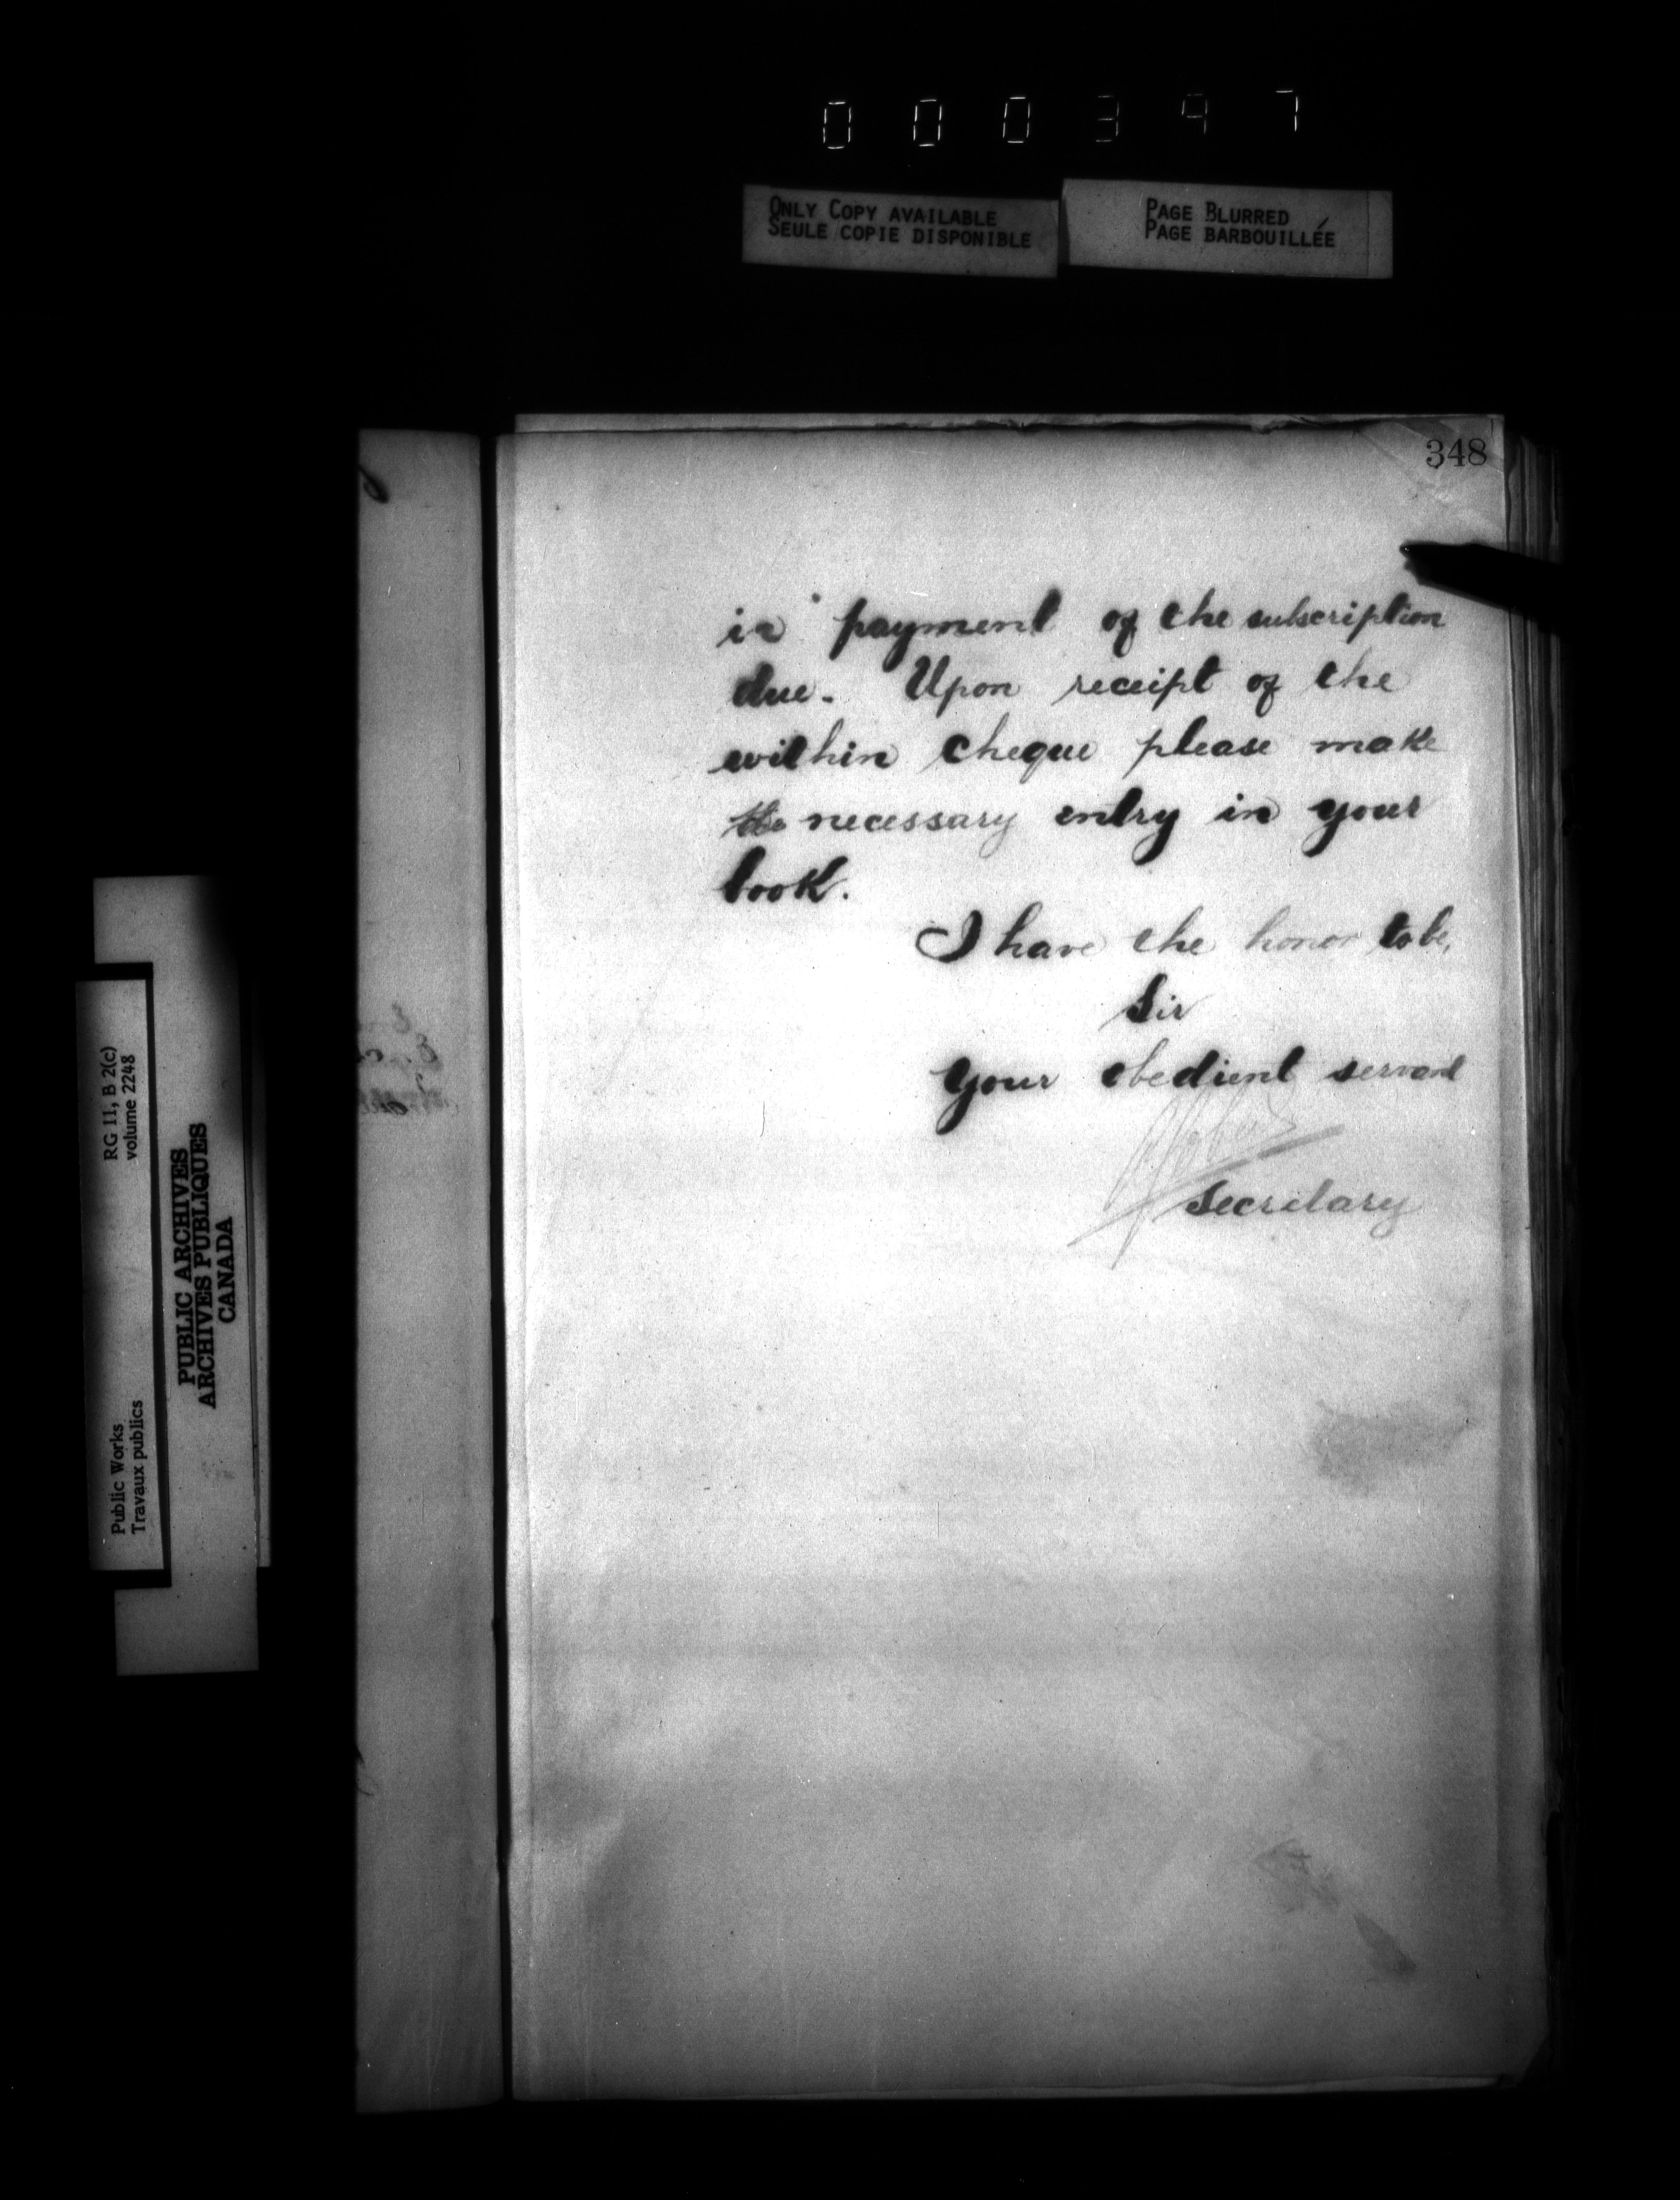 000397
ONLY COPY AVAILABLE
SEULE COPIE DISPONIBLE
PAGE BLURRED
PAGE BARBOUILLÉE
348
in payment of the subscription
due. Upon receipt of the
within cheque please make
the necessary entry in your
book.
I have the honor to be,
Sir
Your obedient servant
Secretary
RG 11, B 2(c)
volume 2248
Public Works
Travaux publics
PUBLIC ARCHIVES
ARCHIVES PUBLIQUES
CANADA